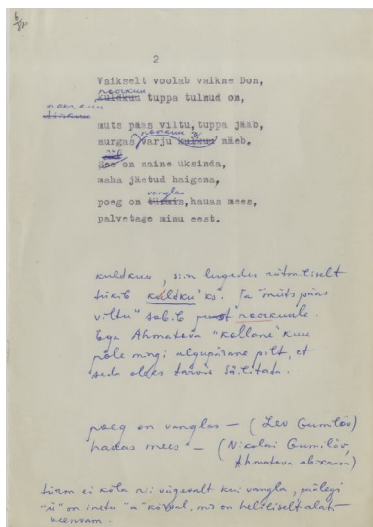 2
Vaikselt voolab vaikne Don,
noorkuu
kuldkuu tuppa tulnud on,
noorkuu
müts pääs viltu, tuppa jääb,
noorkuu
nurgas varju näeb.
See on naine üksinda,
maha jäetud haigena,
vangla
poeg on türmis, hauas mees,
palvetage minu eest.
kuldkuu, siin lugedes rütmiliselt
tükib kuldku'ks. Ta "müts pääs
viltu" sobib just noorkuule.
Ega Ahmatova "kollane" kuu
pole mingi algupärane pilt, et
seda oleks tarvis säilitada.
poeg on vanglas – (Lev Gumiljov)
hauas mees – (Nikolai Gumiljov,
Ahmatova abikaasa)
türm ei kõla nii vägevalt kui vangla, pälegi
"ü" on inetu "a" kõrval, mis on heliliselt alati
keenvam.